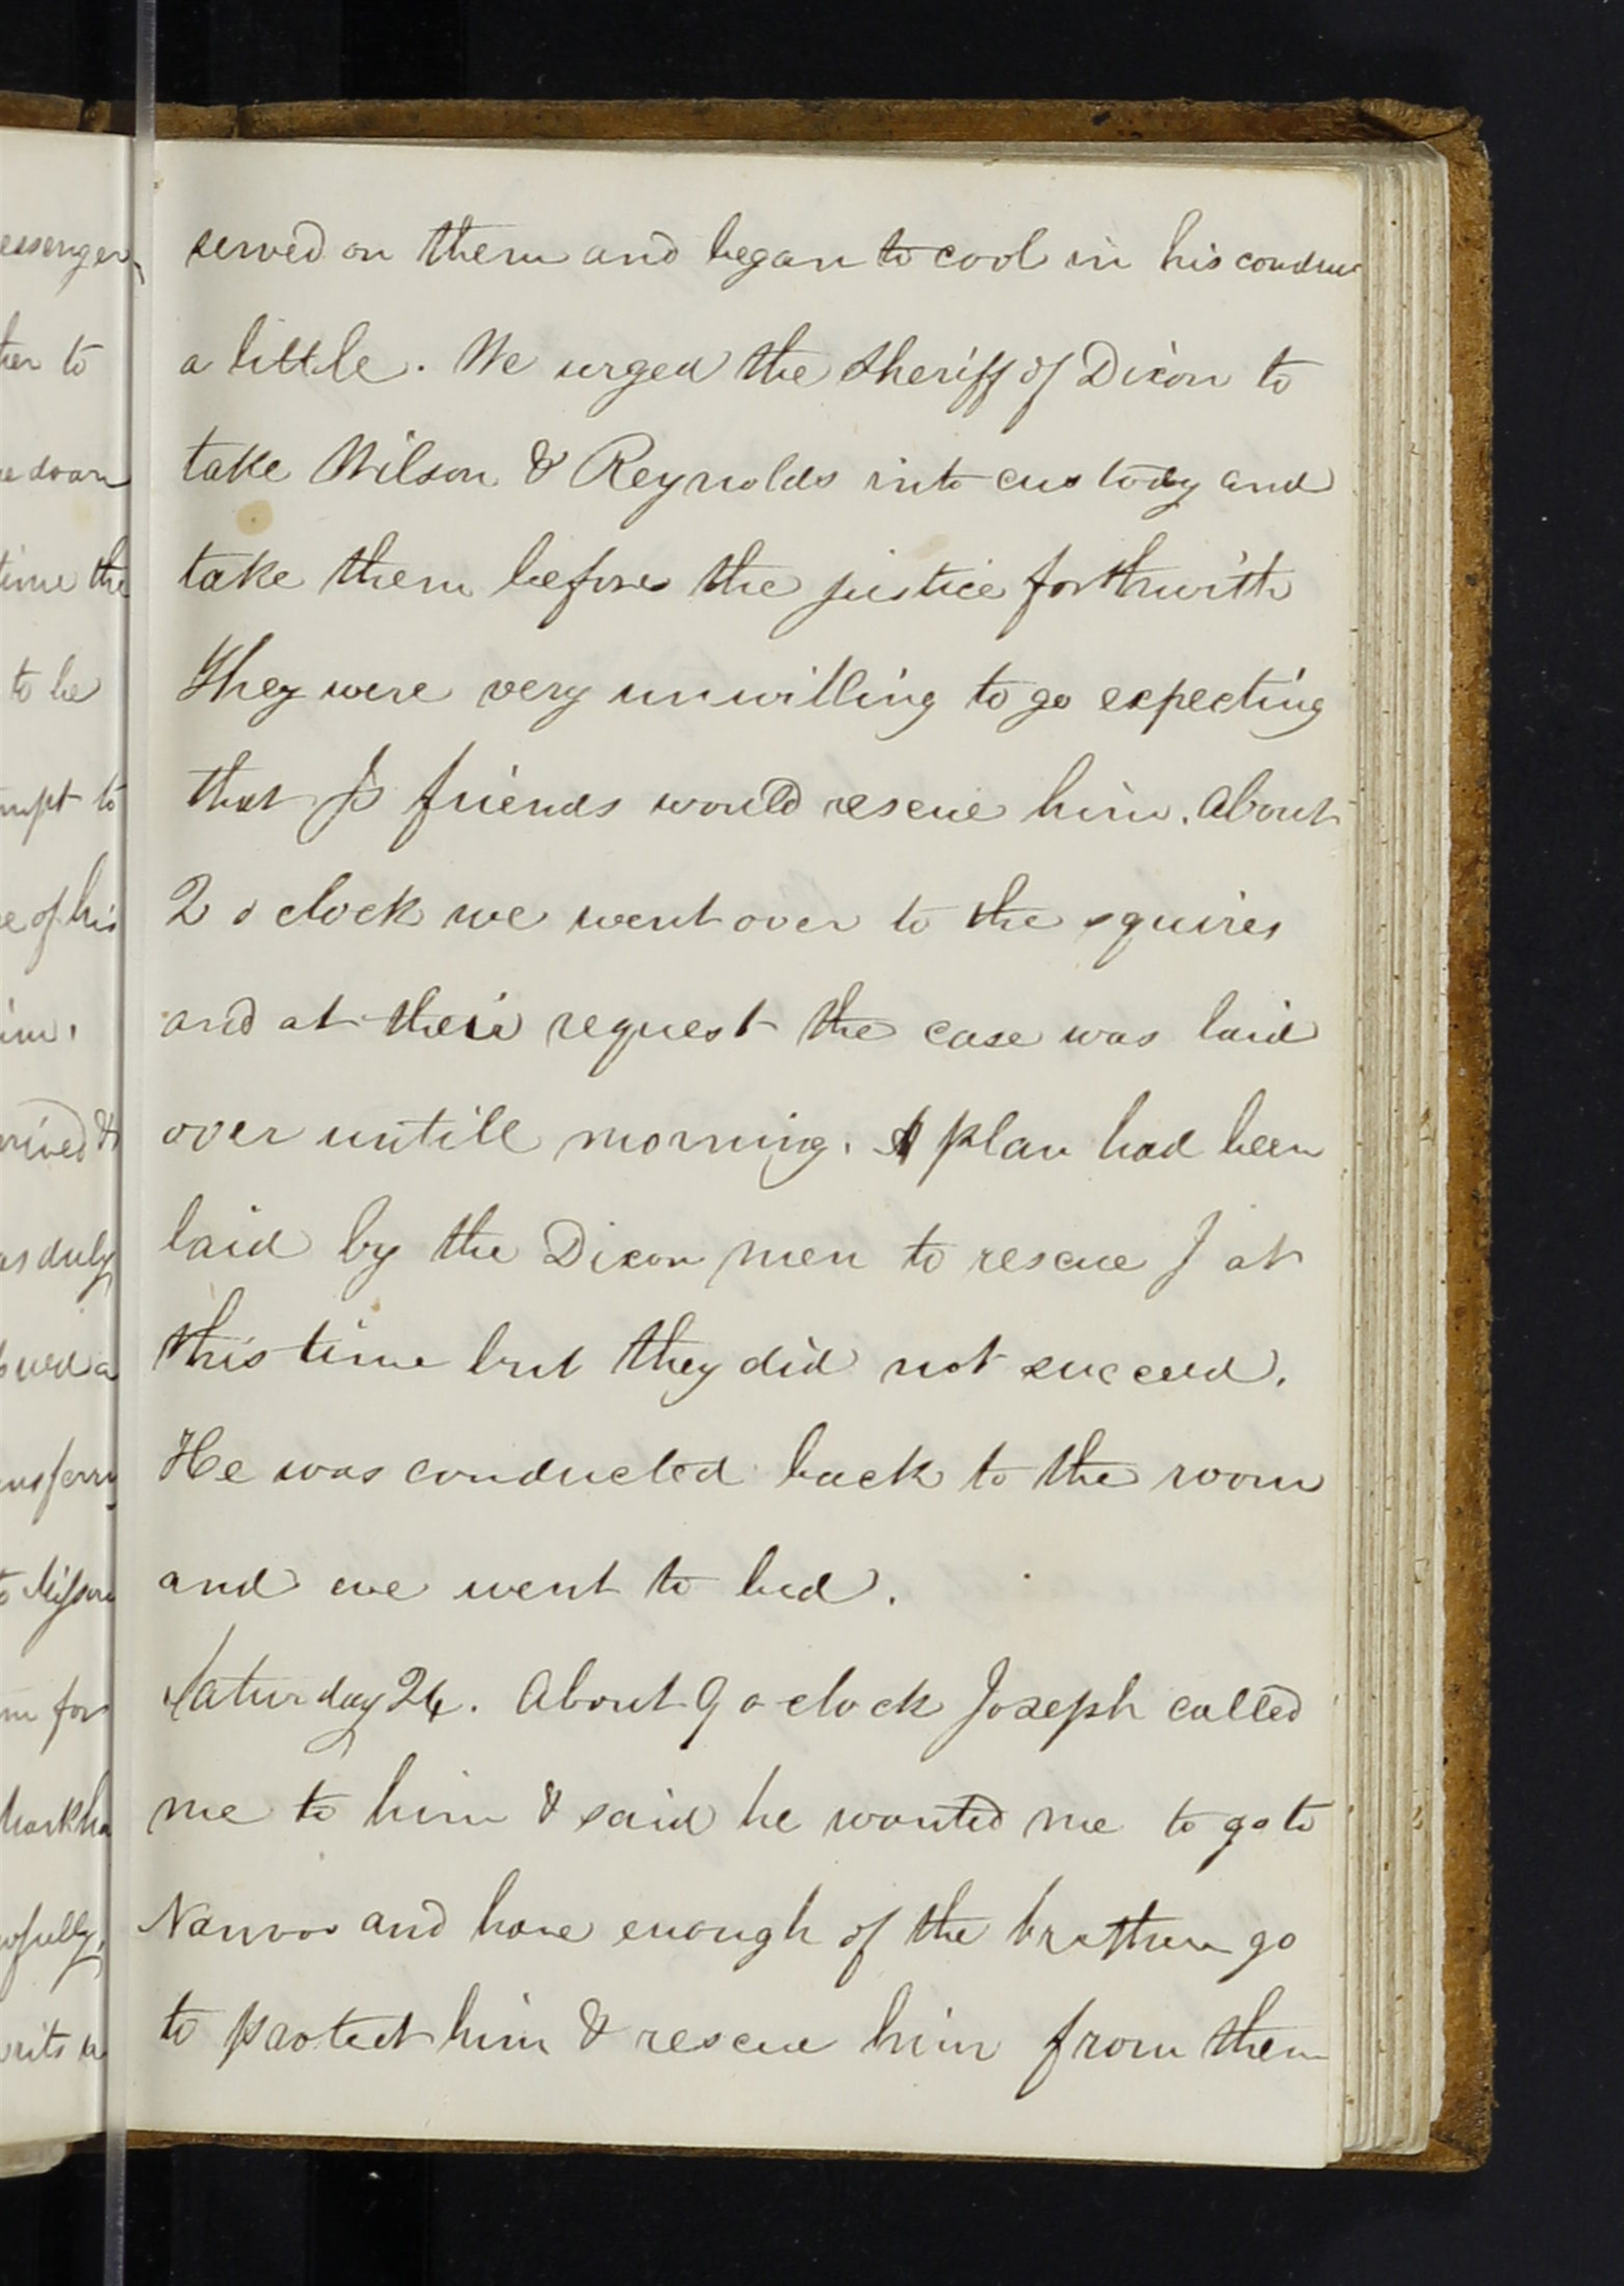 served on them and began to cool in his
a little. We urged the Sheriff of Dixon to
take Wilson & Reynolds into custody and
take them before the justice forthwith
They were very unwilling to go expecting
that Js friends would rescue him. About
2 o clock we went over to the squires
and at their request the case was laid
over untill morning. A plan had been
laid by the Dixon men to rescue J at
this time but they did not succeed.
He was conducted back to the room
and we went to bed.
Saturday 24. About 9 o clock Joseph called
me to him & said he wanted me to go to
Nauvoo and have enough of the brethren go
to protect him & rescue him from them